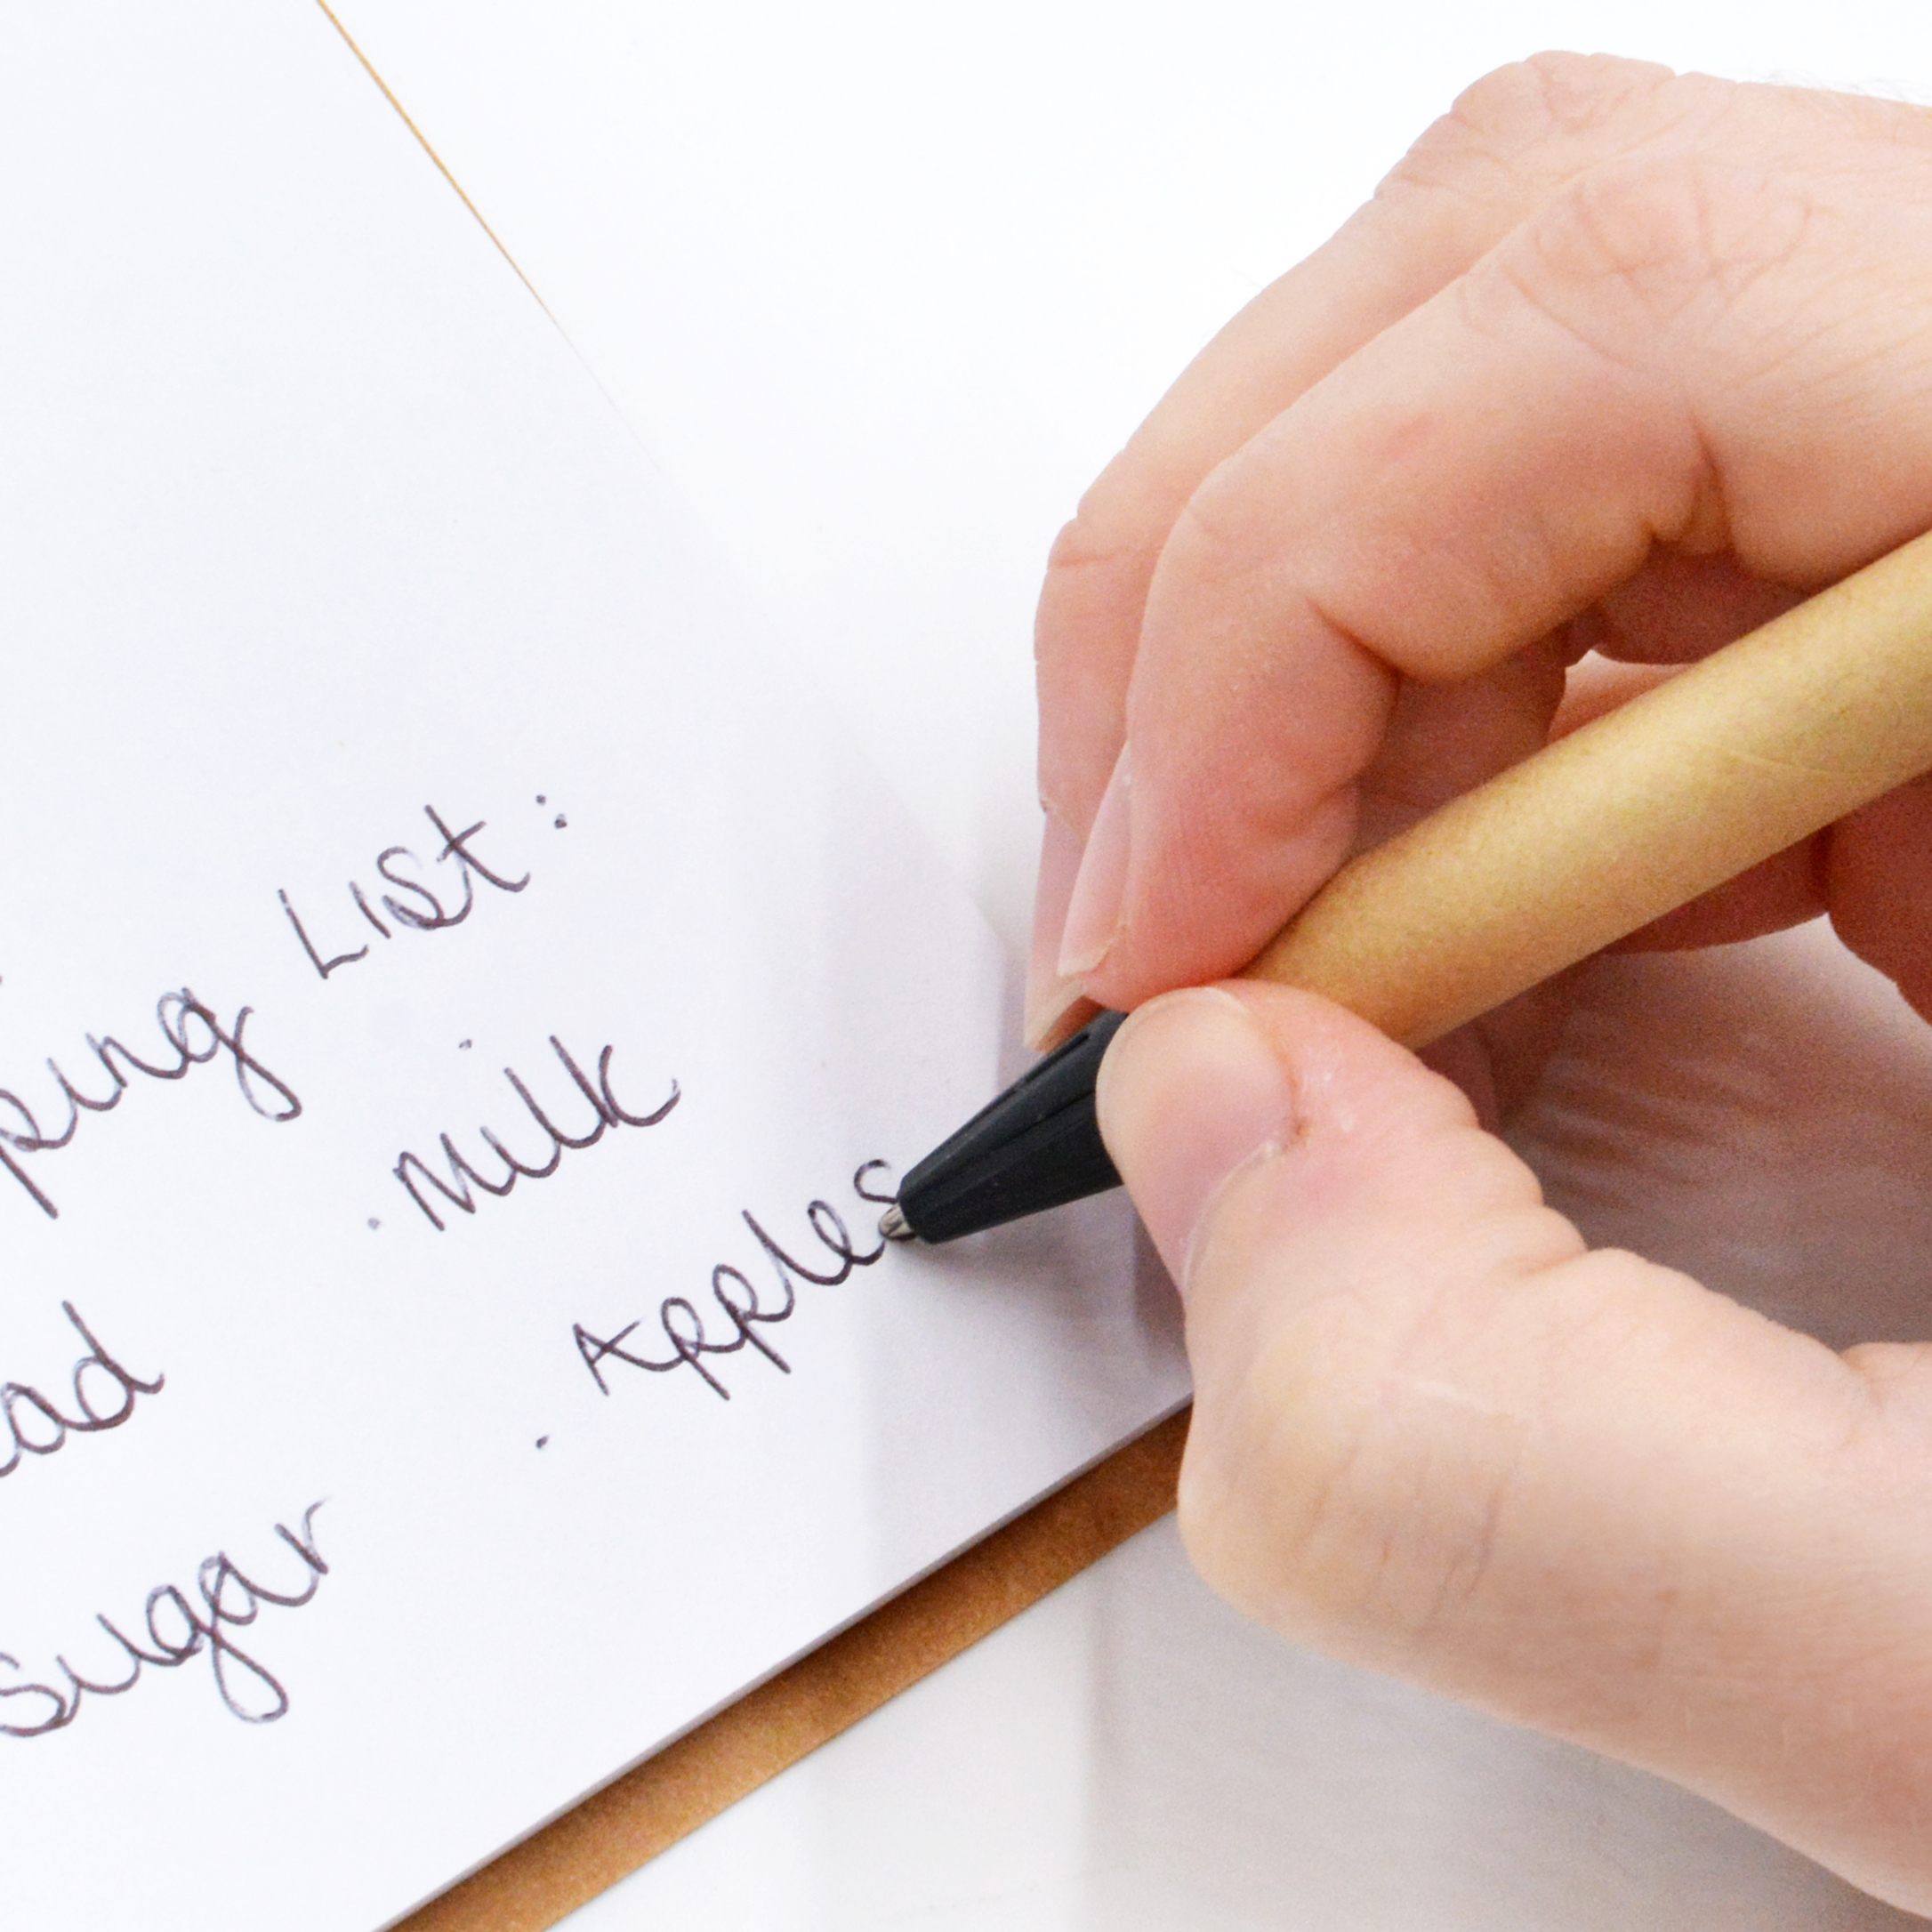 ping List:
ad · Milk
Sugar · Apples